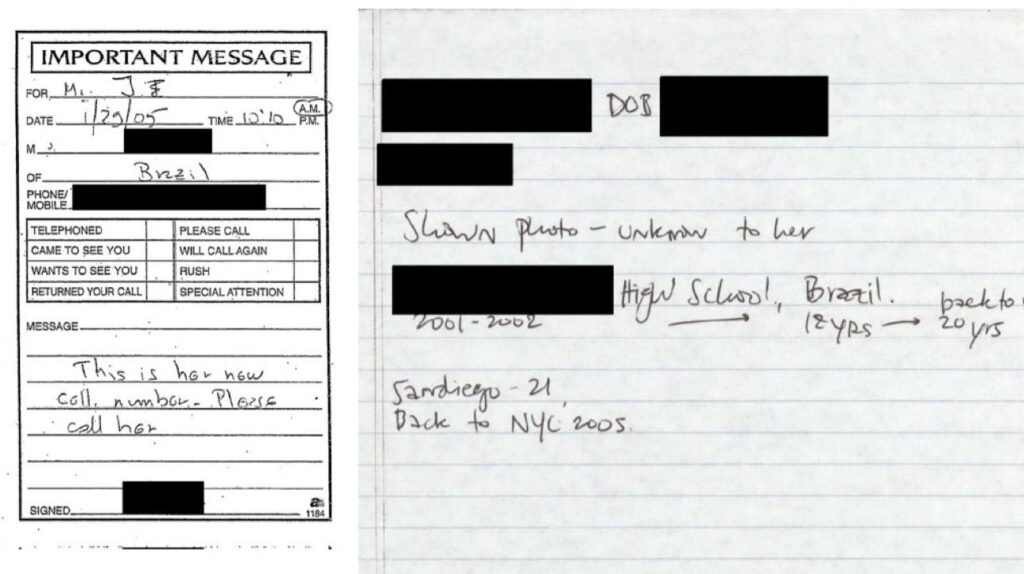 IMPORTANT MESSAGE
FOR Mr. J.E
DATE 1/29/05 TIME 10:10 A.M.
P.M.
M
OF Brazil
PHONE/
MOBILE
TELEPHONED PLEASE CALL
CAME TO SEE YOU WILL CALL AGAIN
WANTS TO SEE YOU RUSH
RETURNED YOUR CALL SPECIAL ATTENTION
MESSAGE
This is her new
cell. number. Please
call her
SIGNED
1184
DOB
Shown photo - unknown to her
High School, Brazil. back to
2001-2002 → 12 yrs → 20 yrs
Sandiego - 21,
Back to NYC 2005.